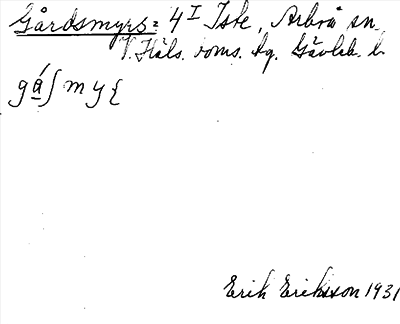 Gårdsmyrs= 4 I Iste, Arbrå sn.
V. Häls. doms. Gävleb. l
gǻʃmy{
Erik Eriksson 1931